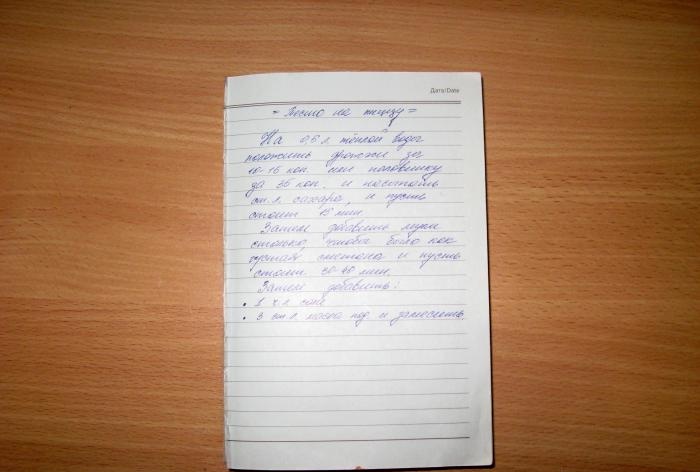 Дата/Date
= Тесто на пиццу =
На 0,5 л. тёплой воды
положить дрожжи за
10-15 коп. или половинку
за 35 коп. и посыпать
ст.л. сахара, и пусть
стоит 15 мин.
Затем добавить муки
столько, чтобы было как
густая сметана и пусть
стоит 30-40 мин.
Затем добавить:
• 1 ч.л. соли
• 3 ст.л. масла под. и замесить.